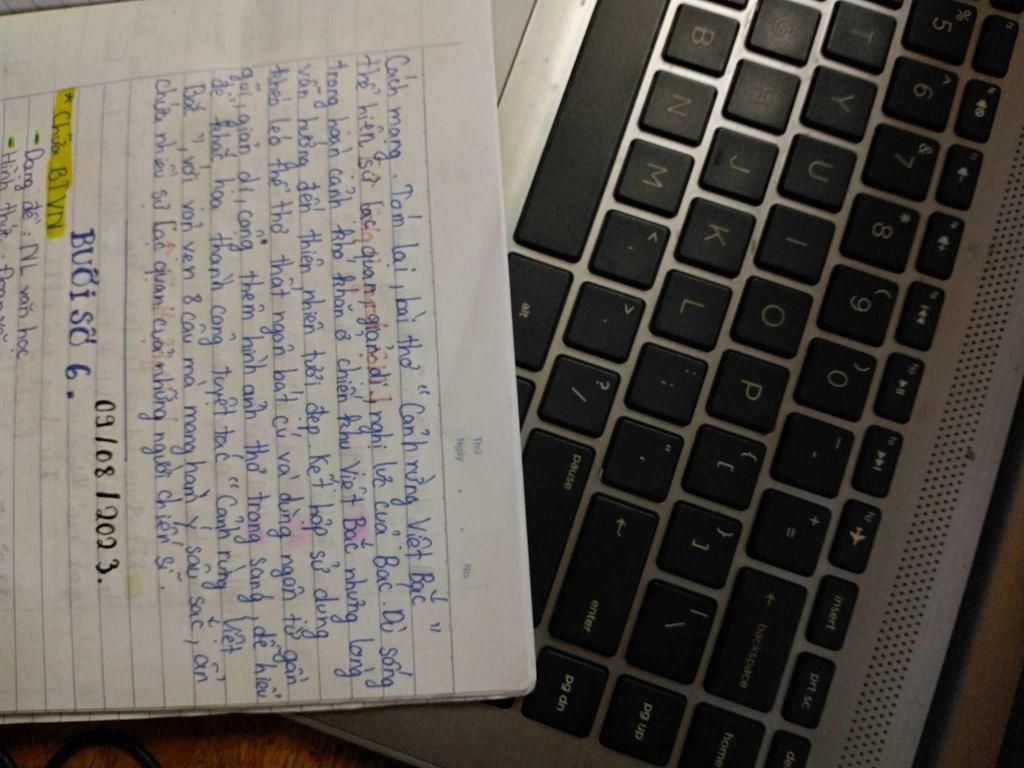 Thứ
Ngày . . No.
Cách mạng. Tóm lại, bài thơ "Cảnh rừng Việt Bắc"
thể hiện sự lạc quan, giản dị, nghị lực của Bác. Dù sống
trong hoàn cảnh khó khăn ở chiến khu Việt Bắc nhưng lòng
vẫn hướng đến thiên nhiên tươi đẹp. Kết hợp sử dụng
khéo léo thể thơ thất ngôn bát cú và dùng ngôn từ gần
gũi, giản dị, cộng thêm hình ảnh thơ trong sáng, dễ hiểu
để khắc họa thành công tuyệt tác "Cảnh rừng Việt
Bắc", với vỏn vẹn 8 câu mà mang hàm ý sâu sắc, ẩn
chứa nhiều sự lạc quan của những người chiến sĩ.
09/08/2023.
BUỔI SỐ 6.
* Chữa BTVN
- Dạng đề: NL văn học
- Hình thức: Đoạn văn
% 5
^ 6
& 7
* 8
( 9
) 0
_ -
+ =
← backspace
insert
prt sc
home
T
Y
U
I
O
P
{ [
} ]
| \
pg up
J
K
L
: ;
" '
enter
pg dn
B
N
M
< ,
> .
? /
pause
alt